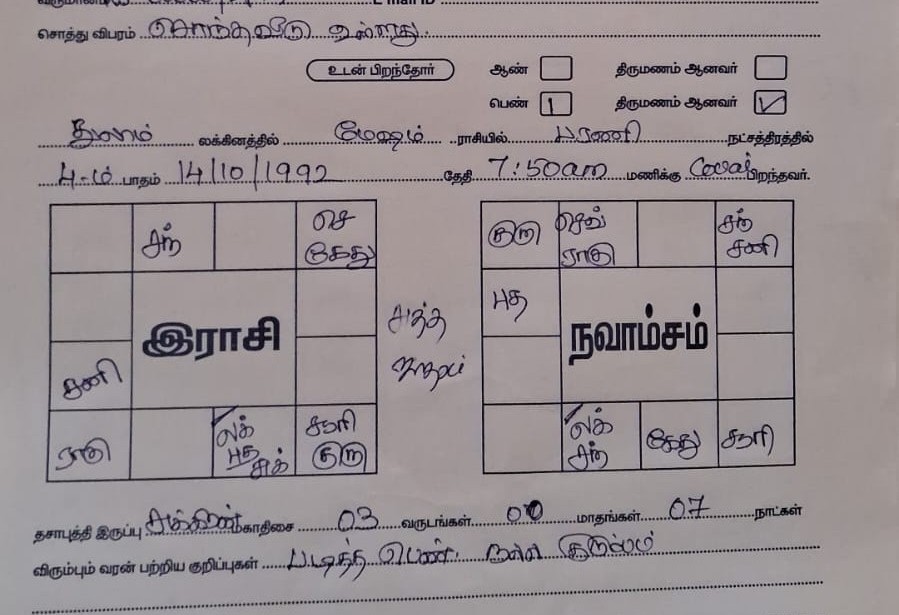 சொத்து விபரம் சொந்தவீடு உள்ளது.
உடன் பிறந்தோர் ஆண் திருமணம் ஆனவர்
பெண் 1 திருமணம் ஆனவர் ✓
துலாம் லக்கினத்தில் மேஷம் ராசியில் பரணி நட்சத்திரத்தில்
4-ம் பாதம் 14/10/1992 தேதி 7:50am மணிக்கு கோவை பிறந்தவர்.
சந் செ கேது
இராசி
சனி
ராகு லக் புத சுக் சூரி குரு
சுத்த ஜாதகம்
குரு செவ் ராகு சுக் சனி
புத
நவாம்சம்
லக் சந் கேது சூரி
தசாபுத்தி இருப்பு சுக்கிரன் மகாதிசை 03 வருடங்கள் 00 மாதங்கள் 07 நாட்கள்
விரும்பும் வரன் பற்றிய குறிப்புகள் படித்த பெண். நல்ல குடும்பம்